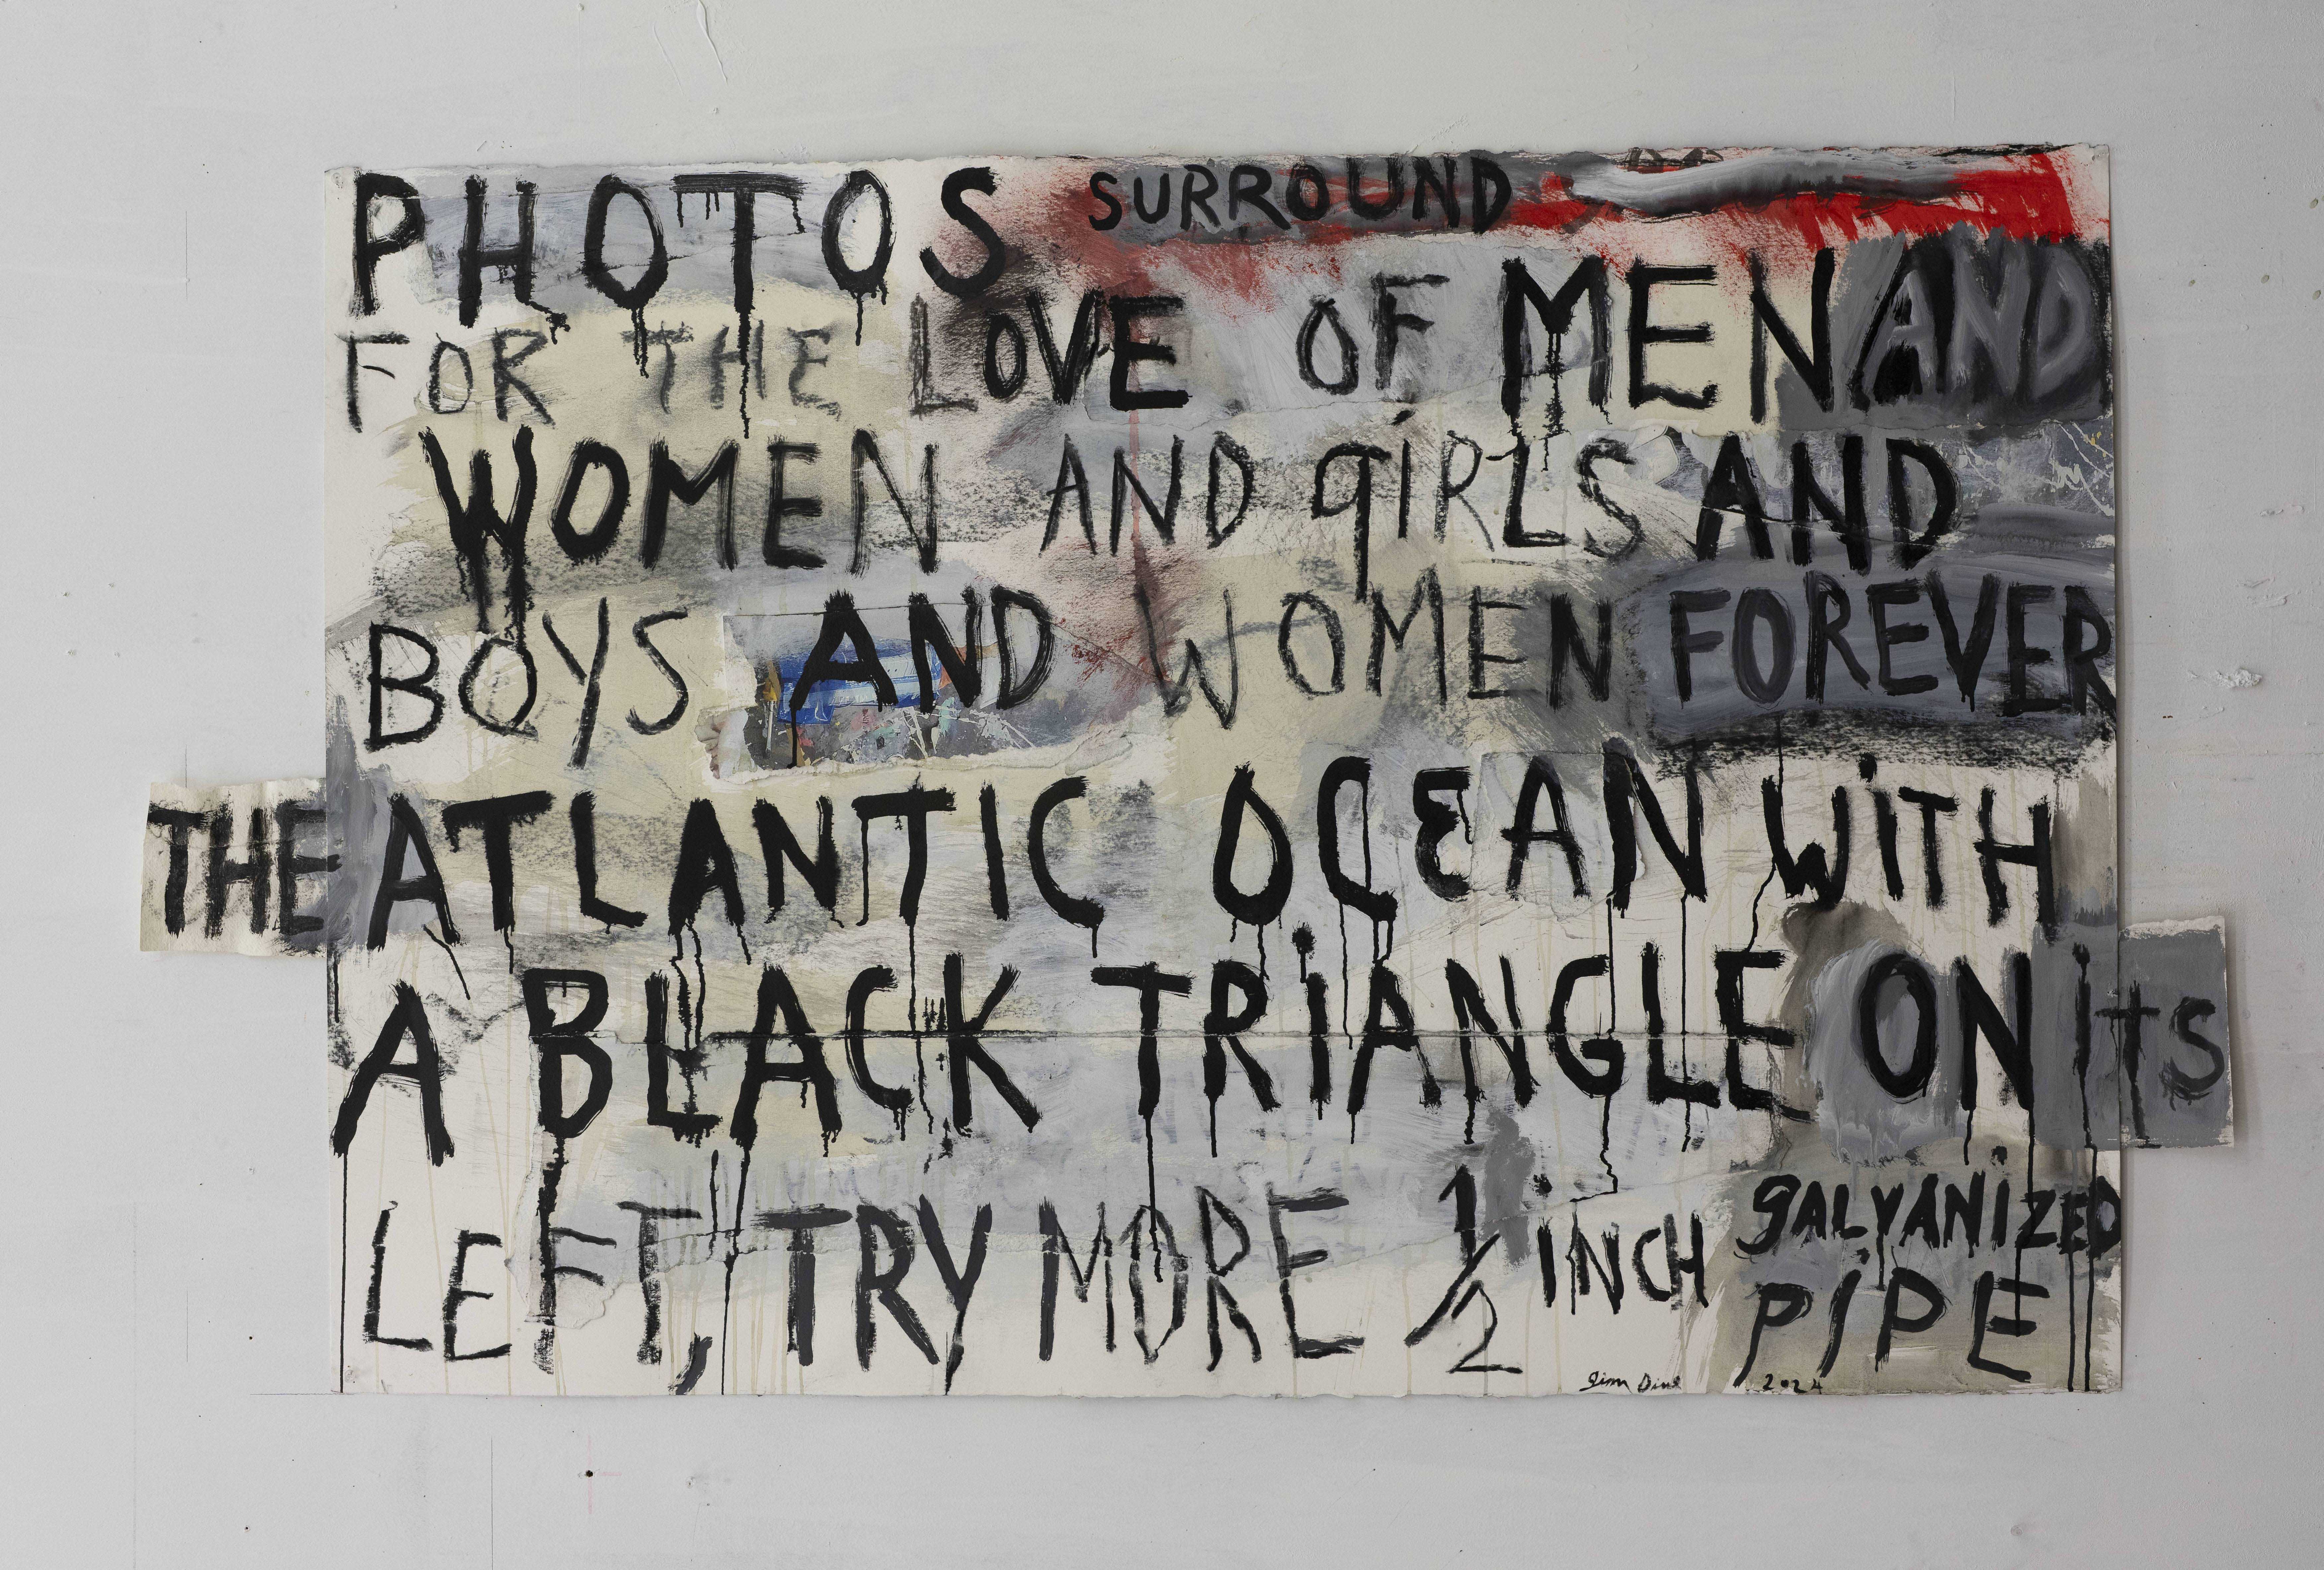 PHOTOS SURROUND
FOR THE LOVE OF MEN AND
WOMEN AND gIRLS AND
BOYS AND WOMEN FOREVER
THE ATLANTIC OCEAN WiTH
A BLACK TRiANGLE ON ITS
LEFT, TRY MORE 1/2 iNCH gALVANiZED
PiPE
Jim Dine 2024